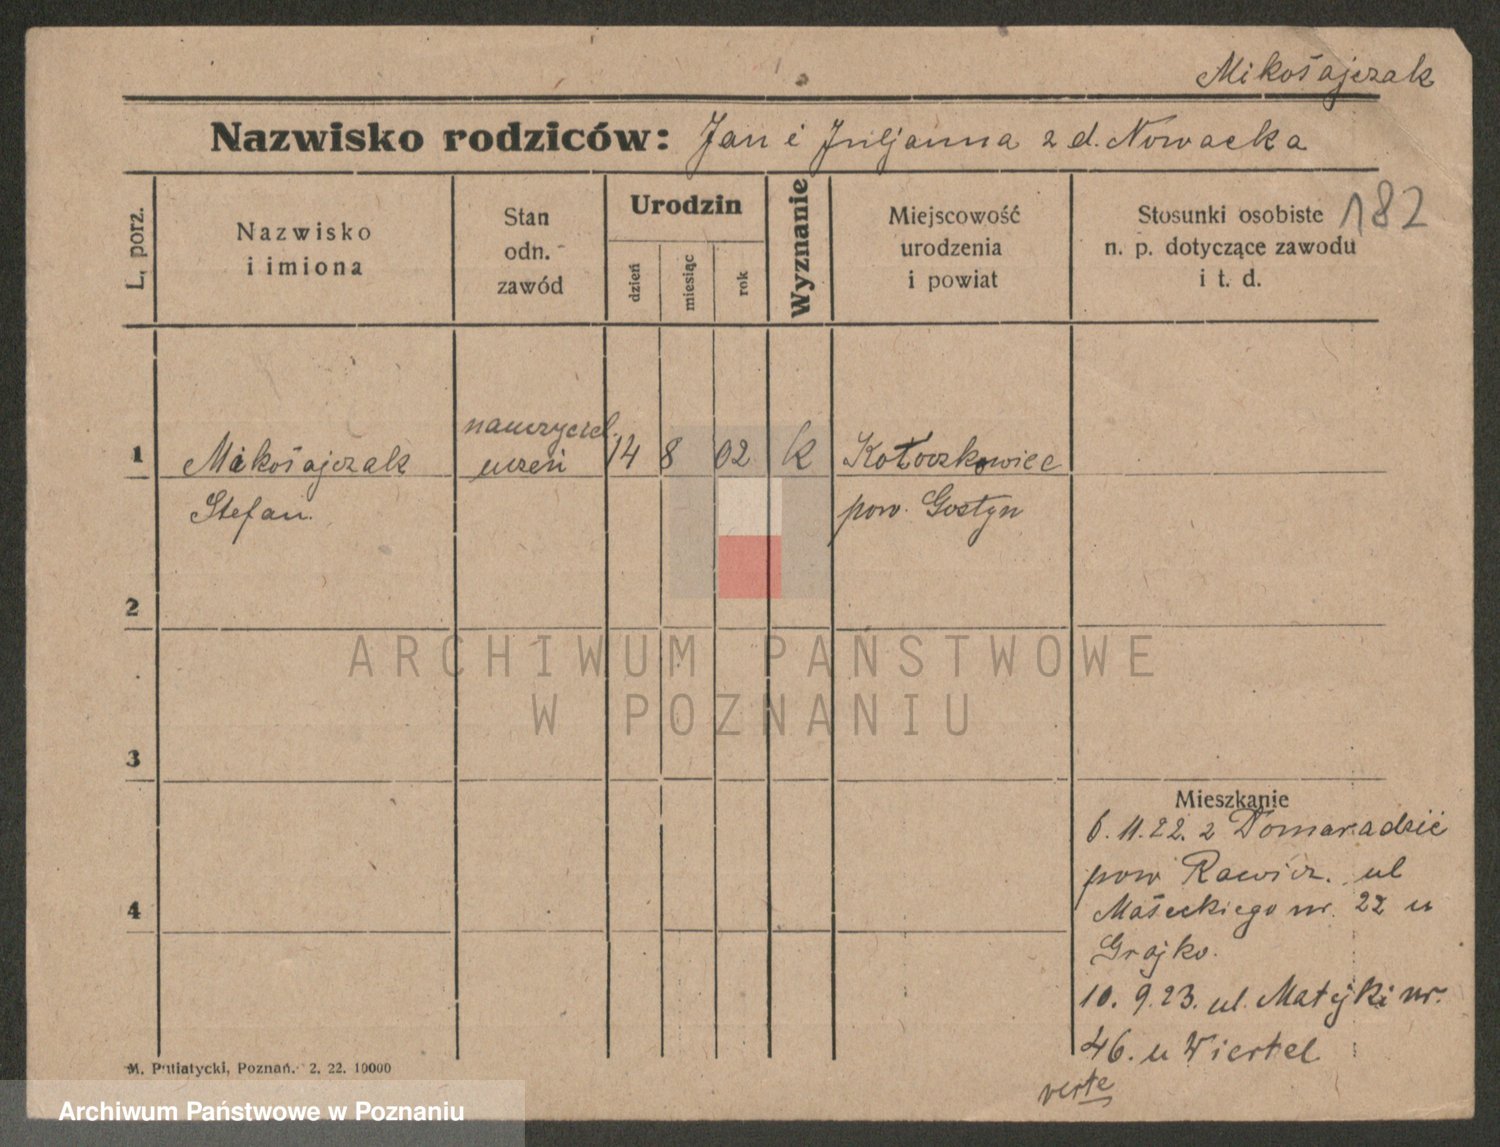 Mikołajczak
Nazwisko rodziców: Jan i Juljanna z d. Nowacka
182
L. porz.
Nazwisko
i imiona
Stan
odn.
zawód
Urodzin
dzień
miesiąc
rok
Wyznanie
Miejscowość
urodzenia
i powiat
Stosunki osobiste
n. p. dotyczące zawodu
i t. d.
nauczyciel.
1 Mikołajczak uczeń 14 8 02 k Kołaczkowiec
Stefan. pow. Gostyn
2
3
4
Mieszkanie
6. 11. 22. z Domaradzic
pow Rawicz. ul
Małeckiego nr. 22 u
Grajko.
10. 9. 23. ul. Matejki nr.
46. u Wiertel
verte
M. Putiatycki, Poznań. 2. 22. 10000
ARCHIWUM PAŃSTWOWE
W POZNANIU
Archiwum Państwowe w Poznaniu